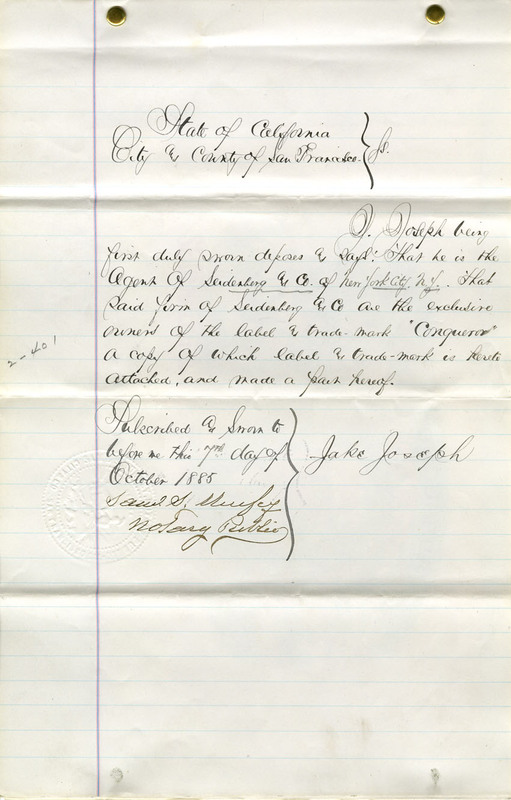 State of California
City & County of San Francisco } ss.
J. Joseph being
first duly sworn deposes & says: That he is the
Agent of Seidenberg & Co. of New York City N.Y. That
said firm of Seidenberg & Co are the exclusive
owners of the label & trade-mark "Conqueror"
a copy of which label & trade-mark is hereto
attached, and made a part hereof.
2-401
Subscribed & Sworn to
before me this 7th day of
October 1885
Jake Joseph
Saml S. Murfey
Notary Public